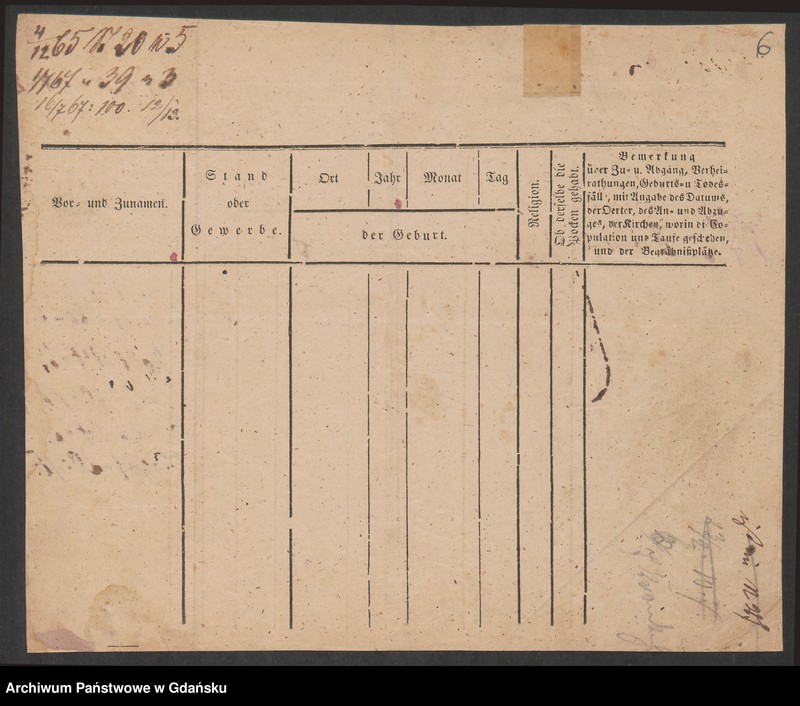 4/12 65 N 20 w 5
1767 u 39 n 3
16/7 67: 100. 12/13.
6
Vor- und Zunamen.
Stand
oder
Gewerbe.
Ort
Jahr
Monat
Tag
der Geburt.
Religion.
Ob derselbe die
Pocken gehabt.
Bemerkung
über Zu- u. Abgang, Verhei-
rathungen, Geburts- u Todes-
fäll, mit Angabe des Datums,
der Oerter, des An- und Abzu-
ges, der Kirchen, worin di Co-
pulation und Taufe geschehen,
und der Begräbnißplätze.
Archiwum Państwowe w Gdańsku